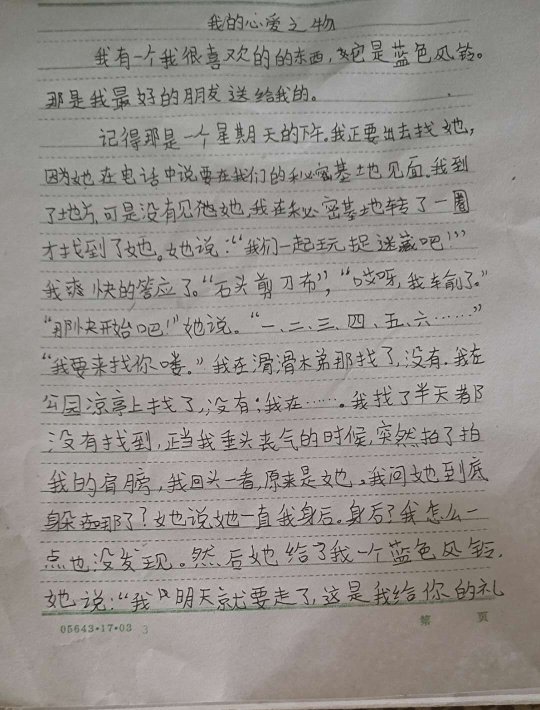 我的心爱之物
我有一个我很喜欢的的东西，它是蓝色风铃。
那是我最好的朋友送给我的。
记得那是一个星期天的下午。我正要出去找她，
因为她在电话中说要在我们的秘密基地见面。我到
了地方，可是没有见她，我在秘密基地转了一圈
才找到了她。她说：“我们一起玩捉迷藏吧！”
我爽快的答应了。“石头剪刀布”，“哎呀，我输了。”
“那快开始吧！”她说。“一、二、三、四、五、六……”
“我要来找你喽。”我在滑滑木弟那找了，没有。我在
公园凉亭上找了，没有；我在……。我找了半天都
没有找到，正当我垂头丧气的时候，突然拍了拍
我的肩膀，我回头一看，原来是她。我问她到底
躲哪了？她说她一直我身后。身后了我怎么一
点也没发现。然后她给了我一个蓝色风铃，
她说：“我明天就要走了，这是我给你的礼
05643·17·03 3
第 页